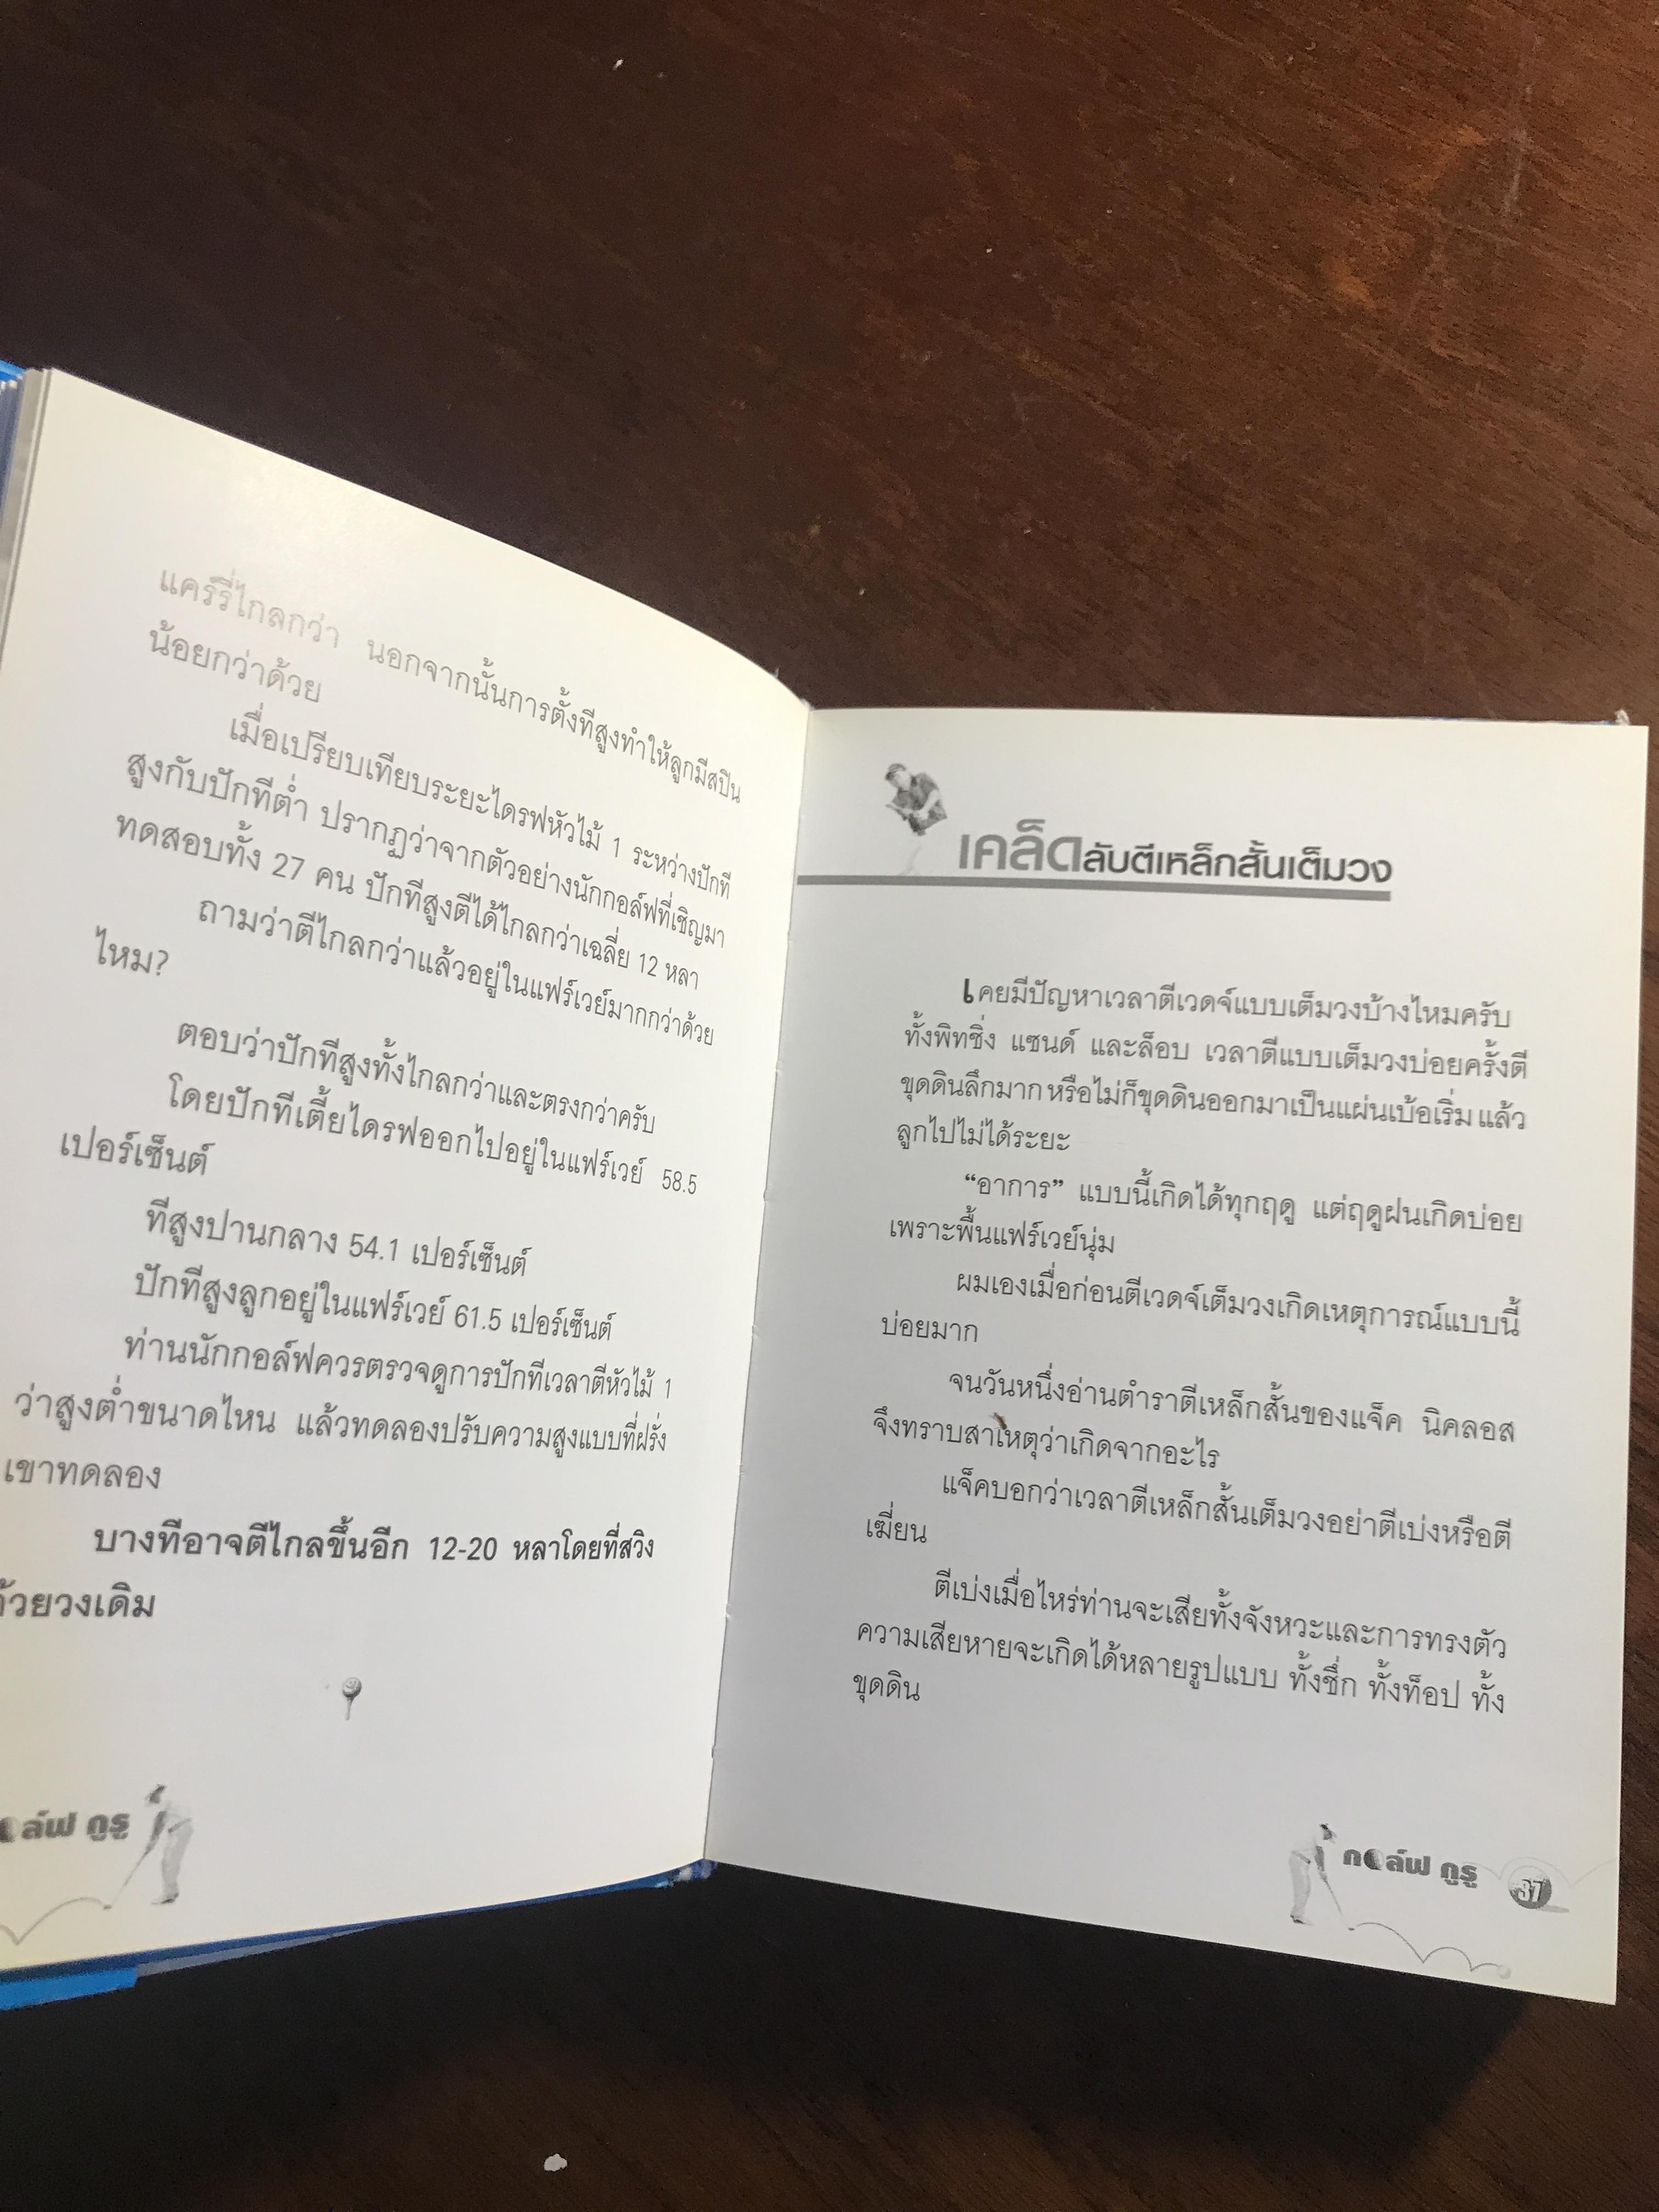 แคร์รี่ไกลกว่า นอกจากนั้นการตั้งทีสูงทำให้ลูกมีสปิน
น้อยกว่าด้วย
เมื่อเปรียบเทียบระยะไดรฟหัวไม้ 1 ระหว่างปักที
สูงกับปักทีต่ำ ปรากฏว่าจากตัวอย่างนักกอล์ฟที่เชิญมา
ทดสอบทั้ง 27 คน ปักทีสูงตีได้ไกลกว่าเฉลี่ย 12 หลา
ถามว่าตีไกลกว่าแล้วอยู่ในแฟร์เวย์มากกว่าด้วย
ไหม?
ตอบว่าปักทีสูงทั้งไกลกว่าและตรงกว่าครับ
โดยปักทีเตี้ยไดรฟออกไปอยู่ในแฟร์เวย์ 58.5
เปอร์เซ็นต์
ทีสูงปานกลาง 54.1 เปอร์เซ็นต์
ปักทีสูงลูกอยู่ในแฟร์เวย์ 61.5 เปอร์เซ็นต์
ท่านนักกอล์ฟควรตรวจดูการปักทีเวลาตีหัวไม้ 1
ว่าสูงต่ำขนาดไหน แล้วทดลองปรับความสูงแบบที่ฝรั่ง
เขาทดลอง
บางทีอาจตีไกลขึ้นอีก 12-20 หลาโดยที่สวิง
ด้วยวงเดิม
อล์ฟ กูรู
เคล็ดลับตีเหล็กสั้นเต็มวง
เคยมีปัญหาเวลาตีเวดจ์แบบเต็มวงบ้างไหมครับ
ทั้งพิทชิ่ง แซนด์ และล็อบ เวลาตีแบบเต็มวงบ่อยครั้งตี
ขุดดินลึกมาก หรือไม่ก็ขุดดินออกมาเป็นแผ่นเบ้อเริ่ม แล้ว
ลูกไปไม่ได้ระยะ
“อาการ” แบบนี้เกิดได้ทุกฤดู แต่ฤดูฝนเกิดบ่อย
เพราะพื้นแฟร์เวย์นุ่ม
ผมเองเมื่อก่อนตีเวดจ์เต็มวงเกิดเหตุการณ์แบบนี้
บ่อยมาก
จนวันหนึ่งอ่านตำราตีเหล็กสั้นของแจ็ค นิคลอส
จึงทราบสาเหตุว่าเกิดจากอะไร
แจ็คบอกว่าเวลาตีเหล็กสั้นเต็มวงอย่าตีเบ่งหรือตี
เฆี่ยน
ตีเบ่งเมื่อไหร่ท่านจะเสียทั้งจังหวะและการทรงตัว
ความเสียหายจะเกิดได้หลายรูปแบบ ทั้งชึ่ก ทั้งท็อป ทั้ง
ขุดดิน
กอล์ฟ กูรู 37